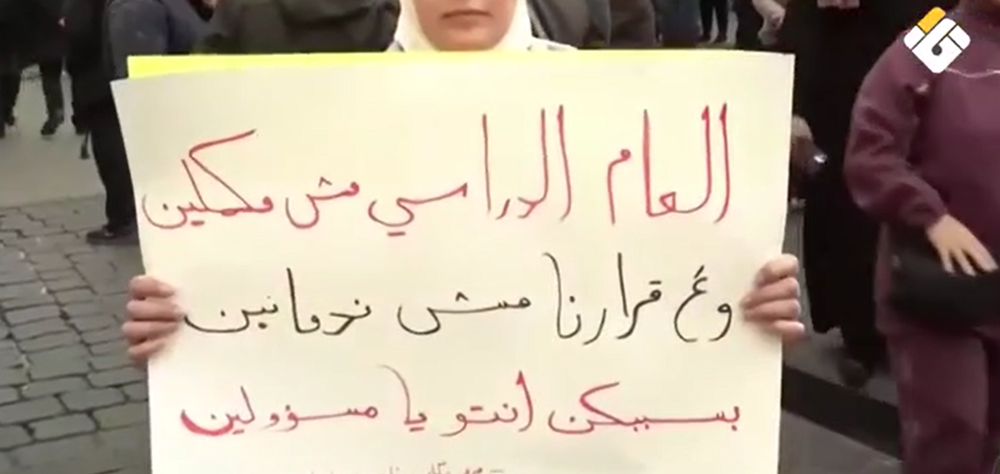 العام الدراسي مش مكملين
وع قرارنا مش ندمانين
بسببكن انتو يا مسؤولين